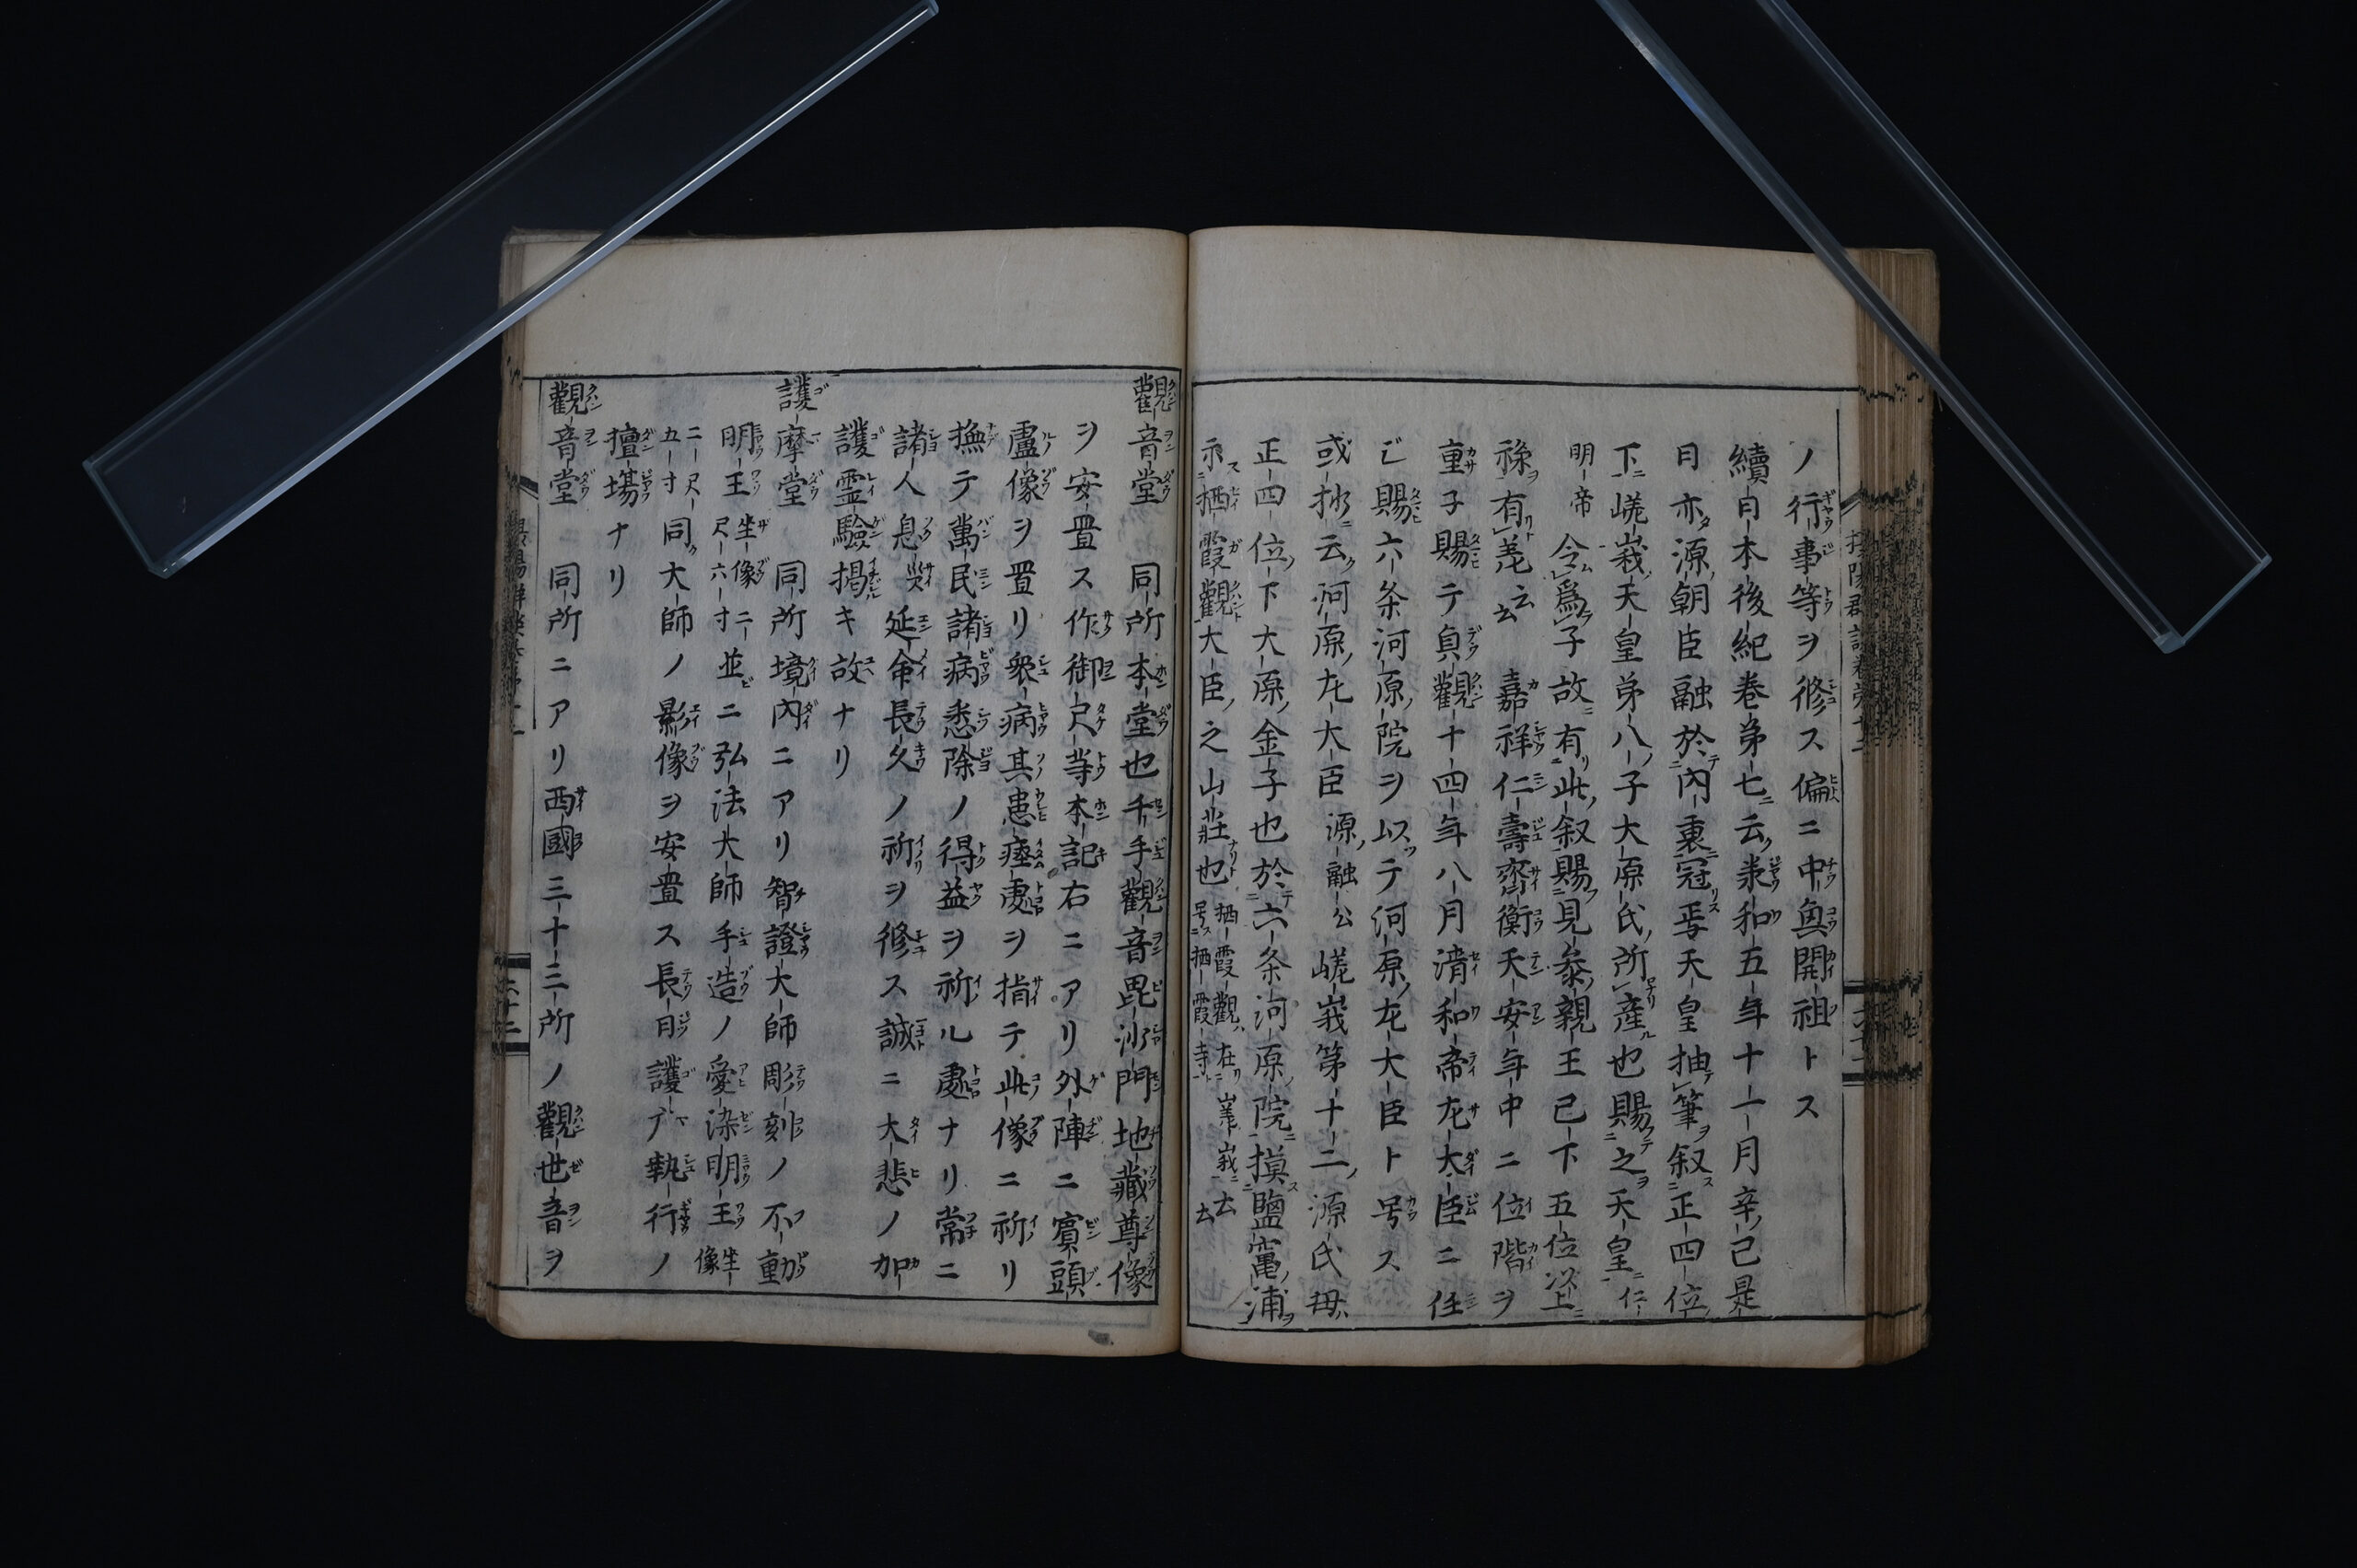 ノ行事等ヲ修ス偏ニ中奥開祖トス
續日本後紀巻第七云兼和五年十一月辛己是
日亦源朝臣融於内裏冠焉天皇抽筆叙正四位
下嵯峩天皇弟八子大原氏所産也賜之天皇仁
明帝令為子故有此叙賜見叅親王已下五位以上
祿有差云云嘉祥仁壽齊衡天安年中ニ位階ヲ
重子賜テ貞觀十四年八月清和帝左大臣ニ任
ビ賜六条河原院ヲ以テ河原左大臣ト号ス
或抄云河原左大臣源融公嵯峩第十二源氏母
正四位下大原金子也於六条河原院摸鹽竃浦
示栖霞觀大臣之山荘也栖霞觀在嵯峩云
号栖霞寺云
觀音堂 同所本堂也千手觀音毘沙門地藏尊像
ヲ安置ス作御尺等本記右ニアリ外陣ニ賓頭
盧像ヲ置リ衆病其患痛處ヲ指テ此像ニ祈リ
撫テ萬民諸病悉除ノ得益ヲ祈ル處ナリ常ニ
諸人息災延命長久ノ祈ヲ修ス誠ニ大悲ノ加
護霊驗掲キ故ナリ
護摩堂 同所境内ニアリ智證大師彫刻ノ不動
明王坐像二尺六寸並ニ弘法大師手造ノ愛染明王坐像
二尺五寸同大師ノ影像ヲ安置ス長日護广執行ノ
壇場ナリ
觀音堂 同所ニアリ西國三十三所ノ觀世音ヲ